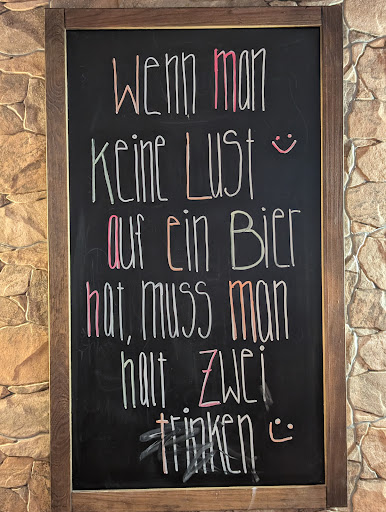 Wenn man
keine Lust
auf ein Bier
hat, muss man
halt Zwei
trinken